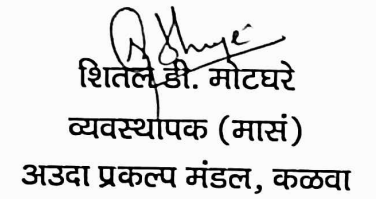 शितल डी. मोटघरे
व्यवस्थापक (मासं)
अउदा प्रकल्प मंडल, कळवा